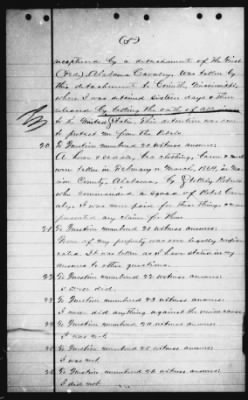 (5)
recaptured by a detachment of the First
(Fed) Alabama Cavalry. Was taken by
this detachment to Corinth Mississippi
where I was detained sixteen days & then
released by taking the oath of all
to the United States. This detention was
to protect me from the Rebels.
20 To Question numbered 20 witness answers
A horse & saddle, bed clothing, &
were taken in February or March, 1864, in
County, Alabama, by
who commanded a squad of Rebel Caval
I was never paid for these things or
presented any claim for them.
21 To Question numbered 21 witness answers
None of my property was ever legally confis
cated. It was taken as I have stated in my
answers to other questions.
22 To Question numbered 22 witness answers
I never did.
23 To Question numbered 23 witness answers
I never did anything against the union cause
24 To Question numbered 24 witness answers
I was not.
25 To Question numbered 25 witness answers
I was not.
26 To Question numbered 26 witness answers
I did not